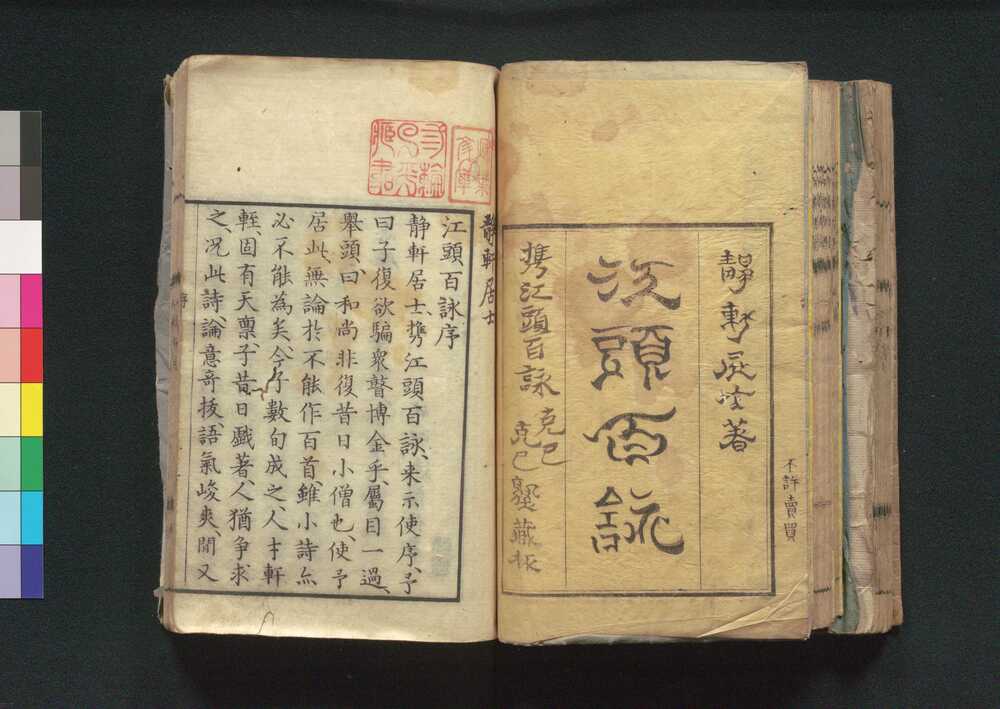 不許賣買
靜軒居士著
江頭百詠
克己塾藏板
靜軒居士
江頭百詠序
靜軒居士、携江頭百詠、来示使序、予
曰子復欲騙衆瞽博金乎、屬目一過、
舉頭曰、和尚非復昔日小僧也、使予
居此、無論於不能作百首、雖小詩亦
必不能為矣、今子數旬成之、人才軒
輊、固有天禀、子昔日戲著、人猶争求
之、况此詩、論意奇拔、語氣峻爽、間又
序